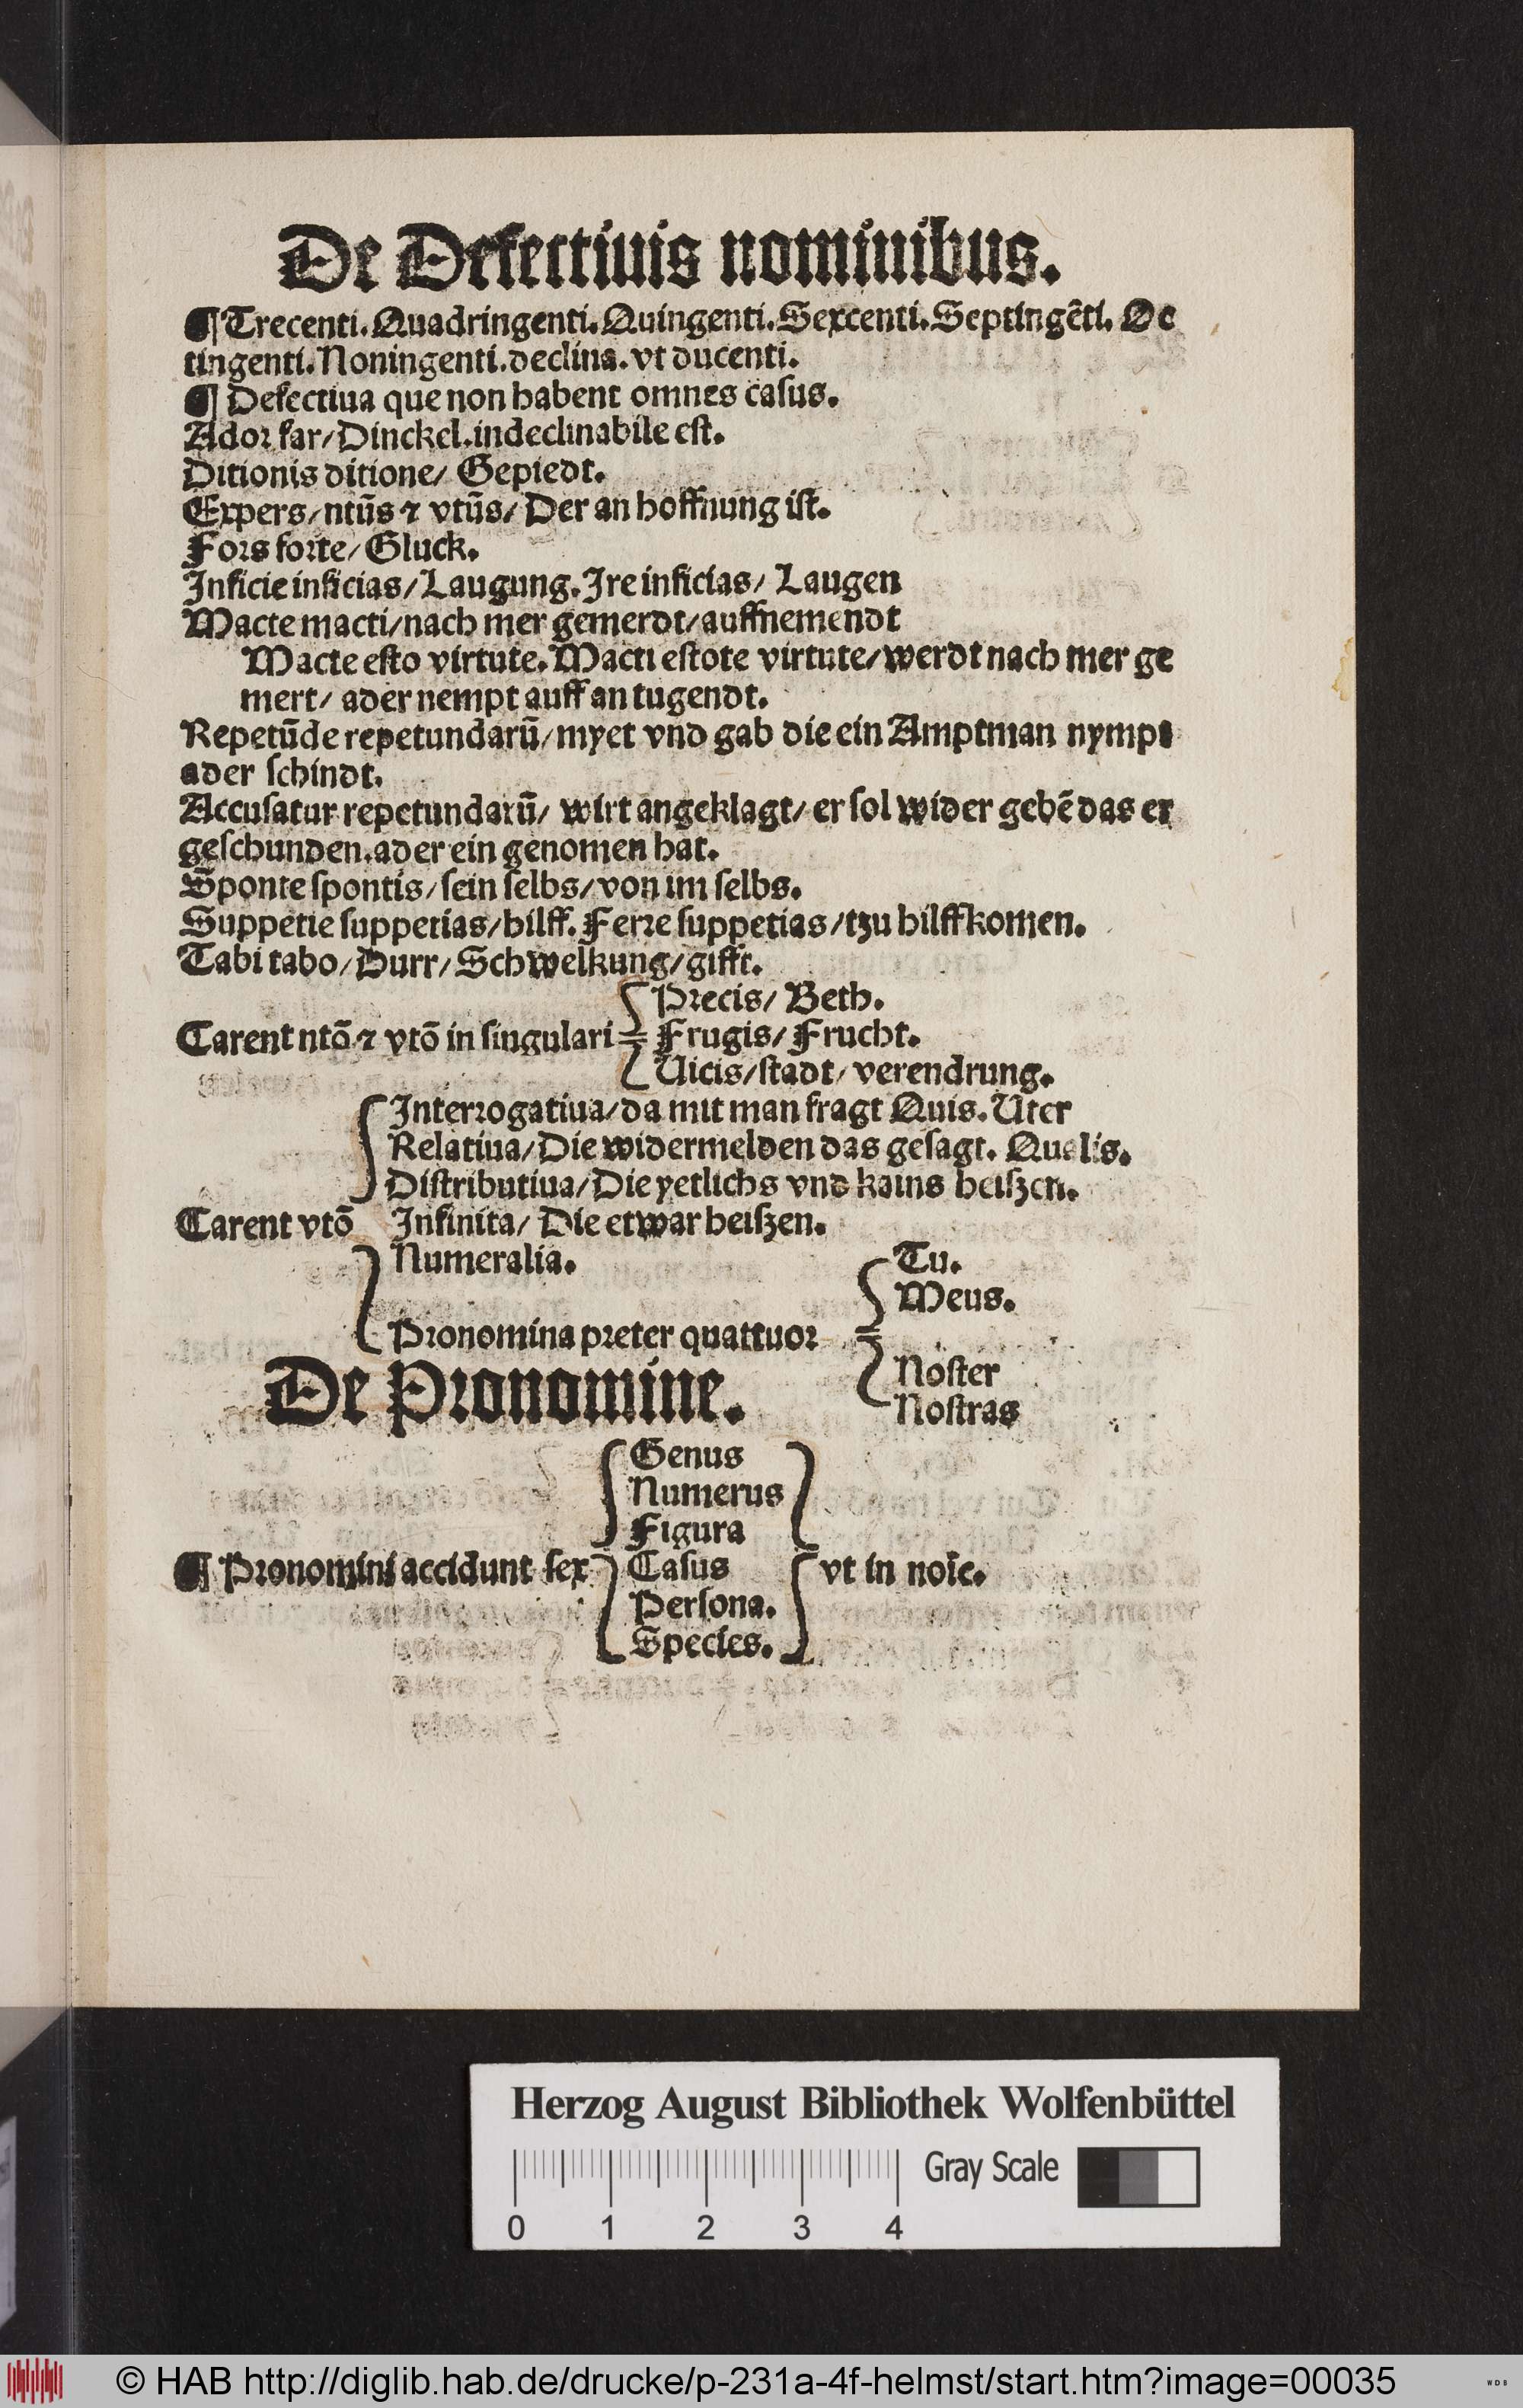 De Defectiuis nominibus.
¶ Trecenti. Quadringenti. Quingenti. Sexcenti. Septingẽti. Oc
tingenti. Noningenti. declina. vt ducenti.
¶ Defectiua que non habent omnes casus.
Ador far/ Dinckel. indeclinabile est.
Ditionis ditione/ Gepiedt.
Expers/ ntũs ⁊ vtũs/ Der an hoffnung ist.
Fors forte/ Gluck.
Inficie inficias/ Laugung. Ire inficias/ Laugen
Macte macti/ nach mer gemerdt/ auffnemendt
Macte esto virtute. Macti estote virtute/ werdt nach mer ge
mert/ ader nempt auff an tugendt.
Repetũde repetundarũ/ myet vnd gab die ein Amptman nympt
ader schindt.
Accusatur repetundarũ/ wirt angeklagt/ er sol wider gebẽ das er
geschunden. ader ein genomen hat.
Sponte spontis/ sein selbs/ von im selbs.
Suppetie suppetias/ hilff. Ferre suppetias/ tzu hilff komen.
Tabi tabo/ Durr/ Schwelkung/ gifft.
Precis/ Beth.
Carent ntõ ⁊ vtõ in singulari = Frugis/ Frucht.
Uicis/ stadt/ verendrung.
Interrogatiua/ da mit man fragt Quis. Uter
Relatiua/ Die widermelden das gesagt. Qualis.
Distributiua/ Die yetlichs vnd kains heiszen.
Carent vtõ Infinita/ Die etwar heiszen.
Numeralia. Tu.
Meus.
Pronomina preter quattuor =
Noster
De Pronomine.
Nostras
Genus
Numerus
Figura
¶ Pronomini accidunt sex Casus vt in noĩe.
Persona.
Species.
Herzog August Bibliothek Wolfenbüttel
Gray Scale
0 1 2 3 4
© HAB http://diglib.hab.de/drucke/p-231a-4f-helmst/start.htm?image=00035
WDB